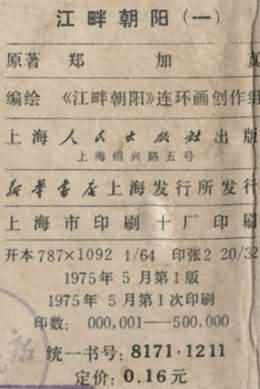 江畔朝阳（一）
原著 郑 加 真
编绘 《江畔朝阳》连环画创作组
上海人民出版社出版
上海绍兴路五号
新华书店上海发行所发行
上海市印刷十厂印刷
开本 787×1092 1/64 印张2 20/32
1975年5月第1版
1975年5月第1次印刷
印数: 000,001——500,000
统一书号: 8171·1211
定价: 0.16元